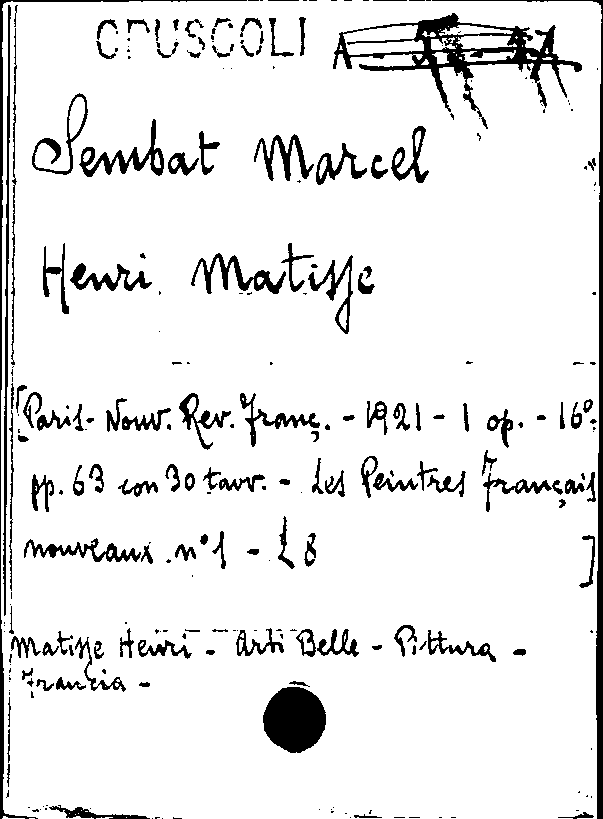 OPUSCOLI
Sembat Marcel
Henri Matisse
[Paris - Nouv. Rev. Franç. - 1921 - 1 op. - 16°.
pp. 63 con 30 tavv. - Les Peintres Français
nouveaux. n° 1 - £ 8 ]
Matisse Henri - Arti Belle - Pittura -
Francia -